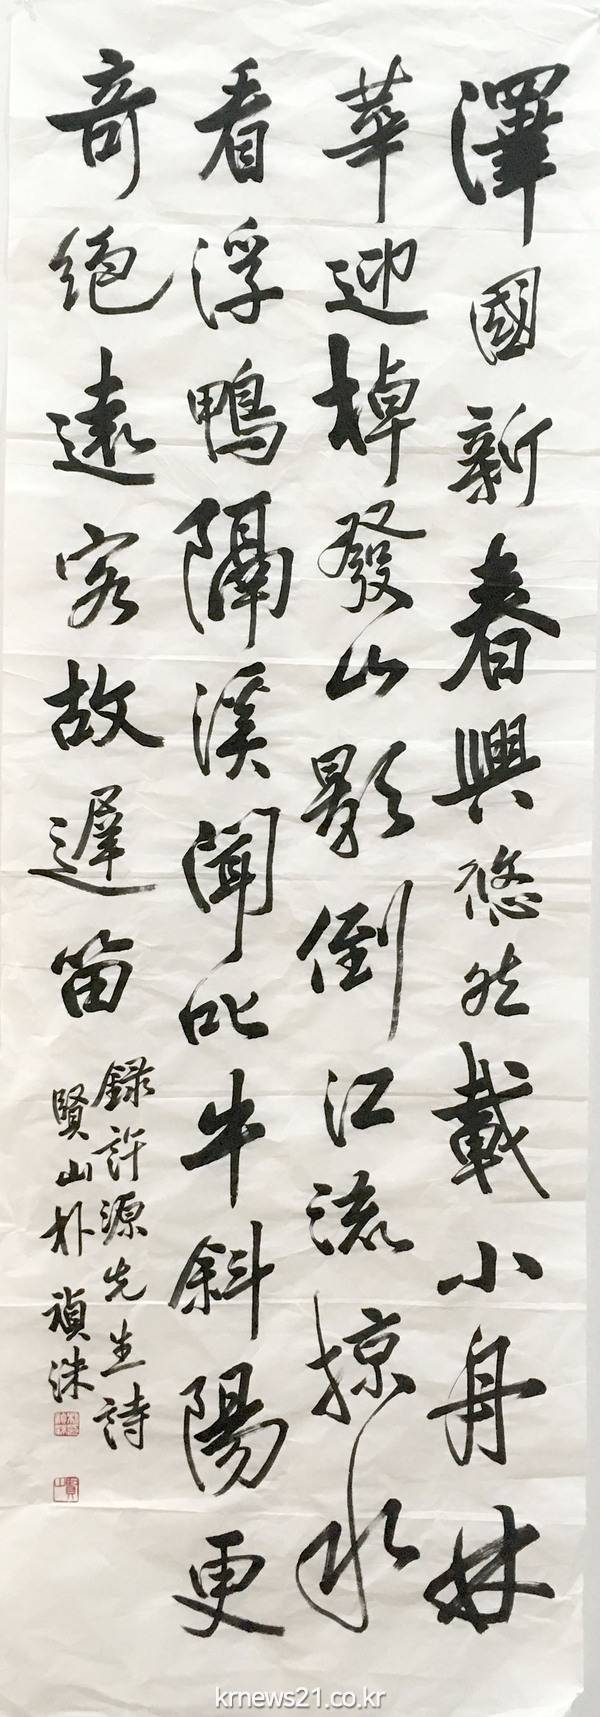 澤國新春興悠然載小舟林
華迎棹發山影倒江流掠水
看浮鴨隔溪聞叱牛斜陽更
奇絕遠客故遲笛
錄許源先生詩
賢山朴禎洙
krnews21.co.kr